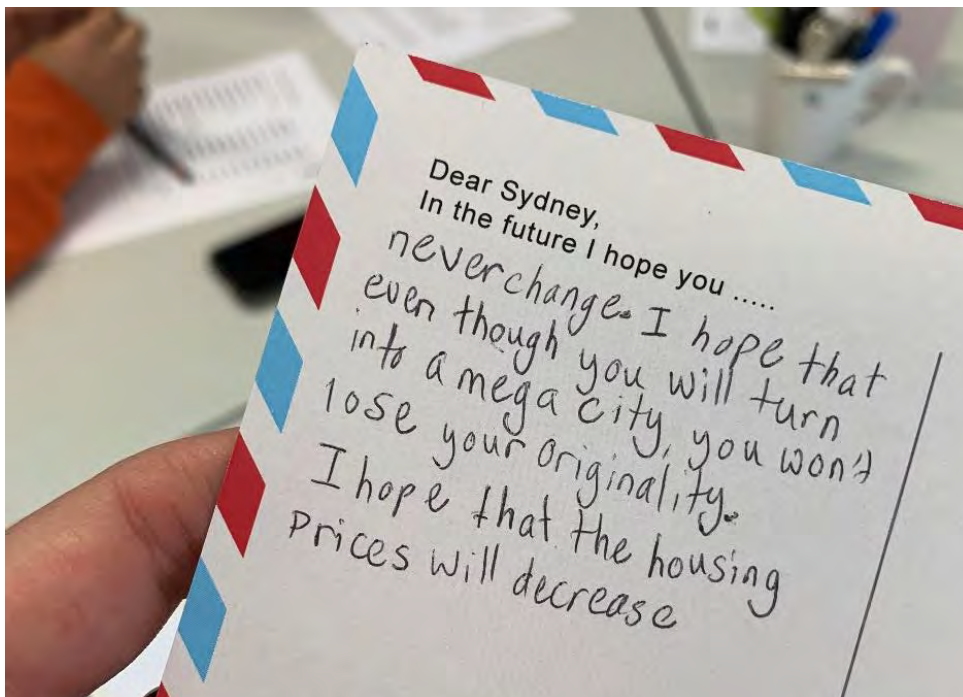 Dear Sydney,
In the future I hope you .....
never change. I hope that
even though you will turn
into a mega city, you won't
lose your originality.
I hope that the housing
prices will decrease